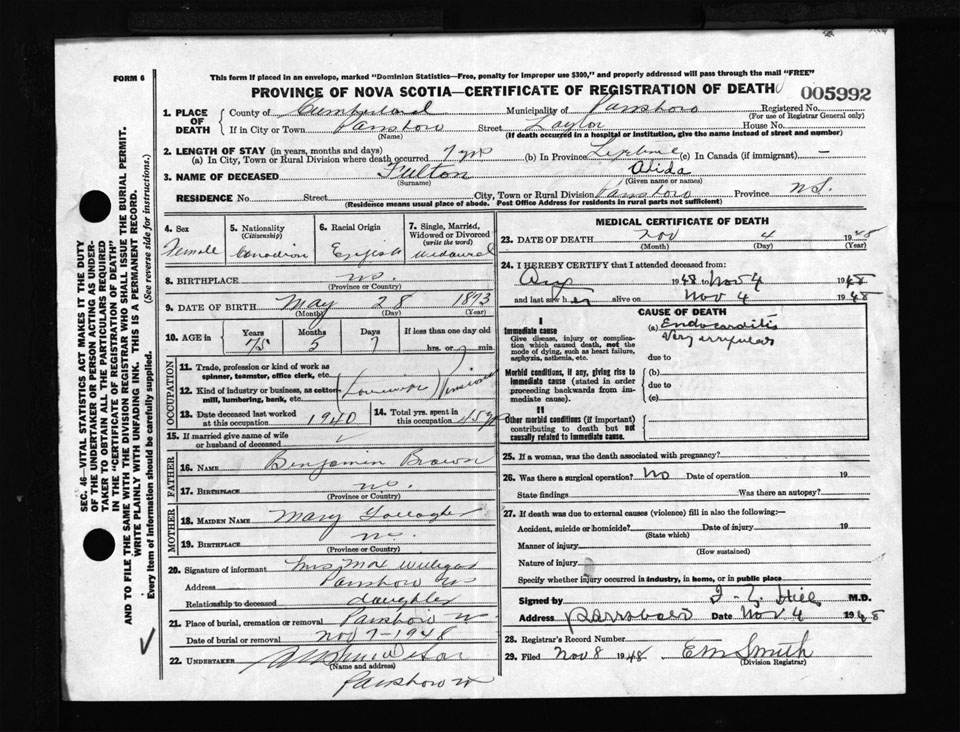 FORM 6
This form if placed in an envelope, marked "Dominion Statistics—Free, penalty for improper use $300," and properly addressed will pass through the mail "FREE"
PROVINCE OF NOVA SCOTIA—CERTIFICATE OF REGISTRATION OF DEATH
005992
1. PLACE OF DEATH
County of Cumberland Municipality of Parrsboro Registered No.
(For use of Registrar General only)
If in City or Town Parrsboro Street Taylor House No.
(Name) (If death occurred in a hospital or institution, give the name instead of street and number)
2. LENGTH OF STAY (in years, months and days)
(a) In City, Town or Rural Division where death occurred 7 yrs (b) In Province Lifetime (c) In Canada (if immigrant) —
3. NAME OF DECEASED Fulton Alida
(Surname) (Given name or names)
RESIDENCE No. Street City, Town or Rural Division Parrsboro Province N.S.
(Residence means usual place of abode. Post Office Address for residents in rural parts not sufficient)
4. Sex Female
5. Nationality (Citizenship) Canadian
6. Racial Origin English
7. Single, Married, Widowed or Divorced (write the word) Widowed
8. BIRTHPLACE N.S.
(Province or Country)
9. DATE OF BIRTH May 28 1873
(Month) (Day) (Year)
10. AGE in Years Months Days If less than one day old
75 5 7 hrs. or min.
OCCUPATION
11. Trade, profession or kind of work as spinner, teamster, office clerk, etc.
12. Kind of industry or business, as cotton mill, lumbering, bank, etc.
13. Date deceased last worked at this occupation 1940
14. Total yrs. spent in this occupation 45 yrs
15. If married give name of wife or husband of deceased
FATHER
16. NAME Benjamin Brown
17. BIRTHPLACE N.S.
(Province or Country)
MOTHER
18. MAIDEN NAME Mary
19. BIRTHPLACE N.S.
(Province or Country)
20. Signature of informant Mrs Max
Address Parrsboro NS
Relationship to deceased daughter
21. Place of burial, cremation or removal Parrsboro NS
Date of burial or removal Nov 7-1948
22. UNDERTAKER
(Name and address)
Parrsboro NS
MEDICAL CERTIFICATE OF DEATH
23. DATE OF DEATH Nov 4 1948
(Month) (Day) (Year)
24. I HEREBY CERTIFY that I attended deceased from:
Aug 1948 to Nov 4 1948
and last saw her alive on Nov 4 1948
CAUSE OF DEATH
I
Immediate cause
Give disease, injury or complication which caused death, not the mode of dying, such as heart failure, asphyxia, asthenia, etc.
(a) Endocarditis
Very irregular
due to
Morbid conditions, if any, giving rise to immediate cause (stated in order proceeding backwards from immediate cause).
(b)
due to
(c)
II
Other morbid conditions (if important) contributing to death but not causally related to immediate cause.
25. If a woman, was the death associated with pregnancy?
26. Was there a surgical operation? No Date of operation 19
State findings Was there an autopsy?
27. If death was due to external causes (violence) fill in also the following:—
Accident, suicide or homicide? Date of injury 19
(State which)
Manner of injury
(How sustained)
Nature of injury
Specify whether injury occurred in industry, in home, or in public place
Signed by Hill M.D.
Address Parrsboro Date Nov 4 1948
28. Registrar's Record Number
29. Filed Nov 8 1948 EM Smith
(Division Registrar)
SEC. 46—VITAL STATISTICS ACT MAKES IT THE DUTY
OF THE UNDERTAKER OR PERSON ACTING AS UNDER-
TAKER TO OBTAIN ALL THE PARTICULARS REQUIRED
IN THE "CERTIFICATE OF REGISTRATION OF DEATH"
AND TO FILE THE SAME WITH THE DIVISION REGISTRAR WHO SHALL ISSUE THE BURIAL PERMIT.
WRITE PLAINLY WITH UNFADING INK. THIS IS A PERMANENT RECORD.
Every item of Information should be carefully supplied. (See reverse side for instructions.)